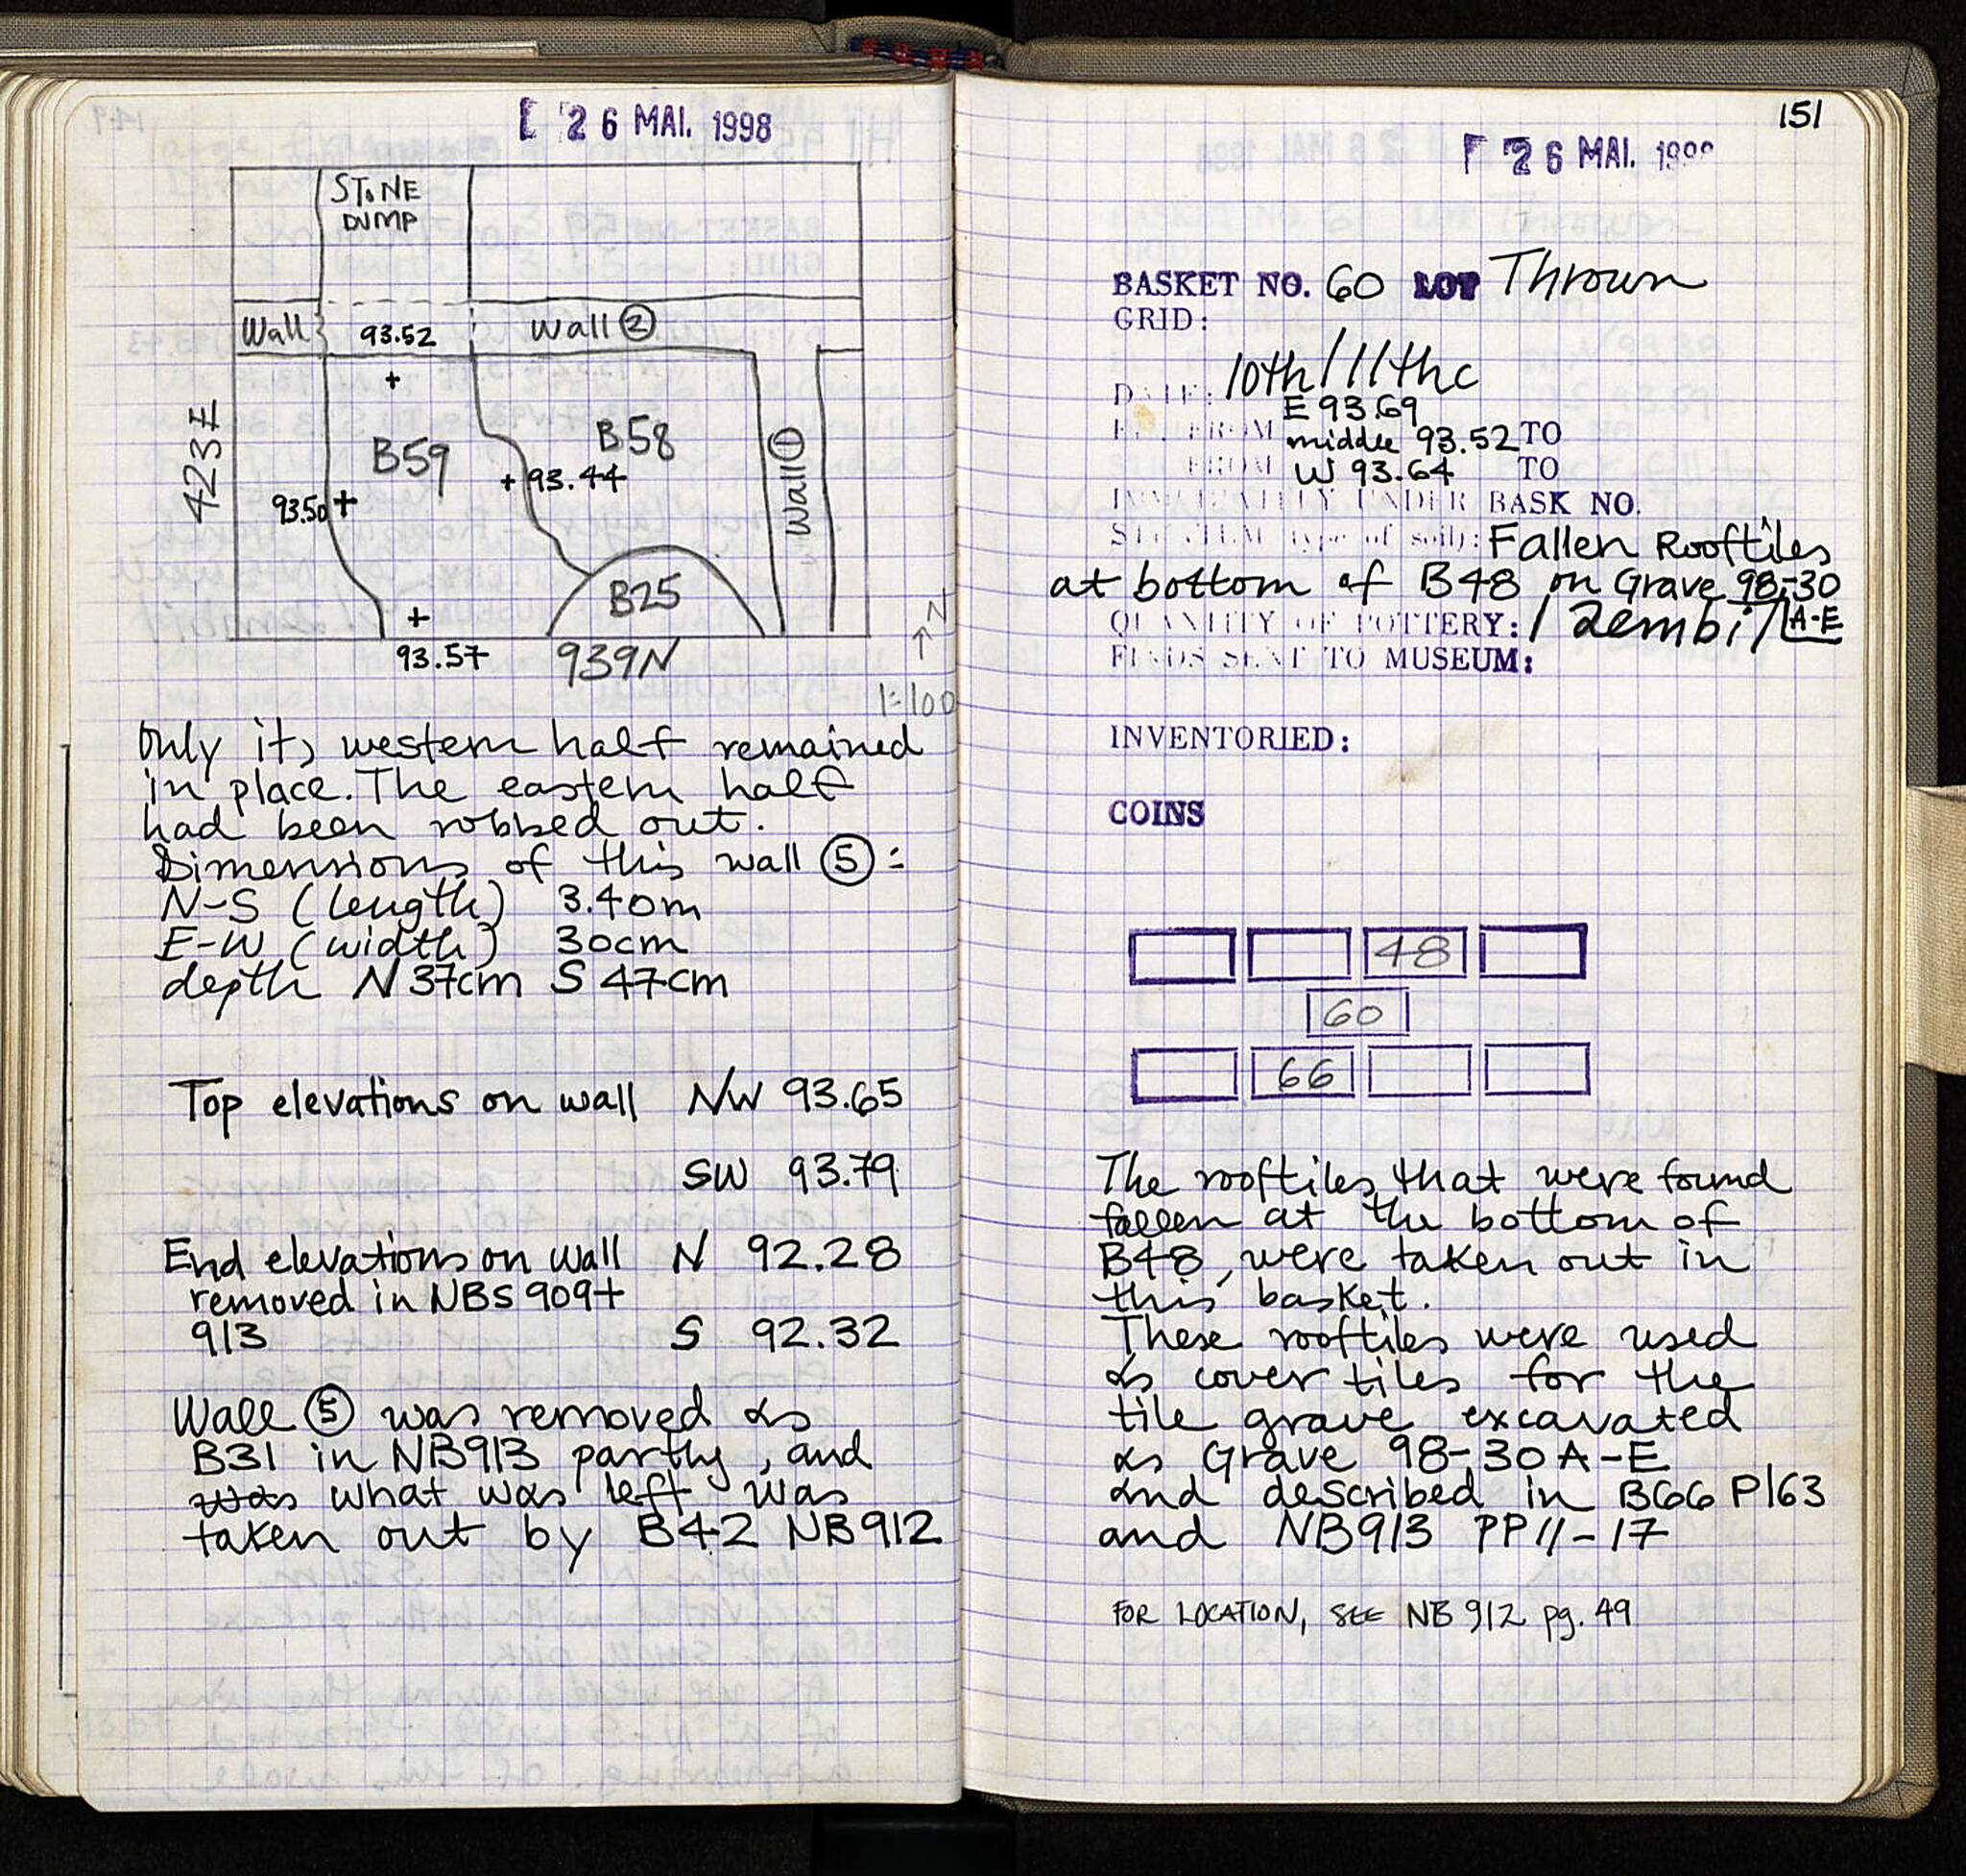 26 MAI. 1998
STONE
DUMP
Wall
93.52
Wall ②
423E
B59
B58
93.44
93.50
Wall ①
B25
93.57
939N
N
1=100
Only its western half remained
in place. The eastern half
had been robbed out.
Dimensions of this wall ⑤:
N-S (length) 3.40m
E-W (width) 30cm
depth N 37cm S 47cm
Top elevations on wall NW 93.65
SW 93.79
End elevations on wall N 92.28
removed in NBS 909+
913
S 92.32
Wall ⑤ was removed as
B31 in NB913 partly, and
was what was left was
taken out by B42 NB912
151
26 MAI.
BASKET NO. 60 LOT Thrown
GRID:
DATE: 10th/11thc
E 93.69
EL. FROM middle 93.52 TO
FROM W 93.64 TO
IMMEDIATELY UNDER BASK NO.
STRATUM (type of soil): Fallen Rooftiles
at bottom of B48 on Grave 98-30
A-E
QUANTITY OF POTTERY: 1 Zembil
FINDS SENT TO MUSEUM:
INVENTORIED:
COINS
48
60
66
The rooftiles that were found
fallen at the bottom of
B48, were taken out in
this basket.
These rooftiles were used
as cover tiles for the
tile grave excavated
as Grave 98-30 A-E
and described in B66 P163
and NB913 PP11-17
FOR LOCATION, SEE NB 912 pg. 49